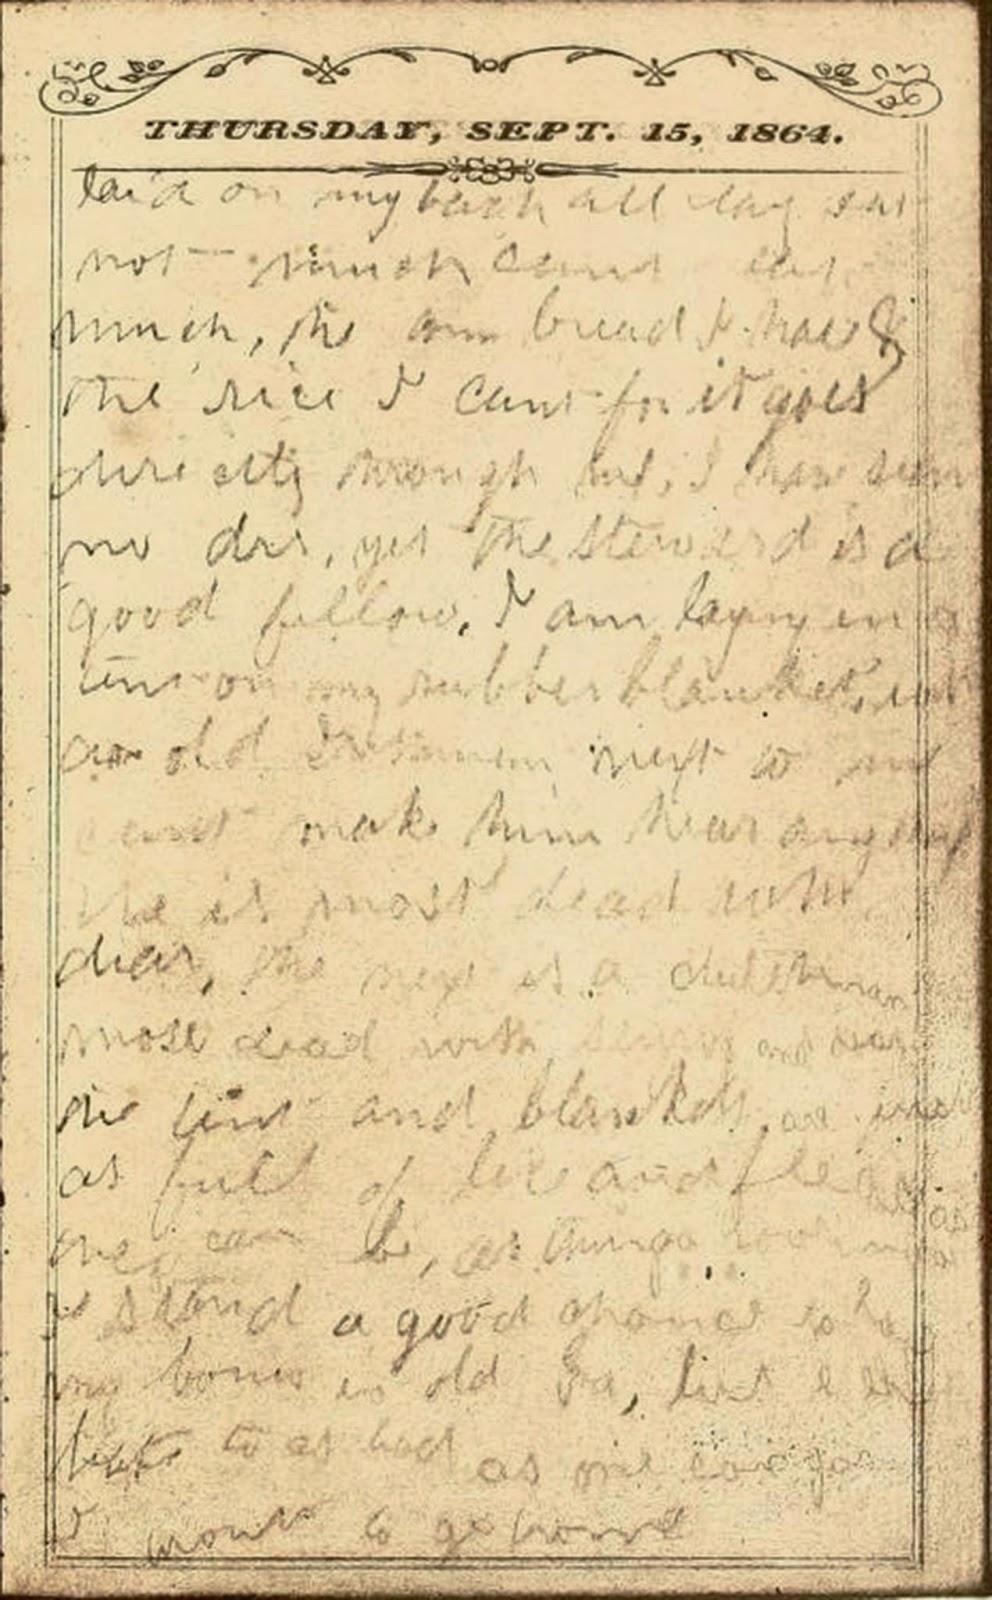 THURSDAY, SEPT. 15, 1864.
laid on my back all day eat
not much cant eat
much, the corn bread I hate &
the rice I cant for it goes
directly through me, I have seen
no dr, yet the steward is a
good fellow, I am laying in a
tent on my rubber blanket,
an old next to me
cant make him hear anything
he is most dead with
diar, the next is a dutchman
most dead with and diar
the tent and blankets are just
as full of lice and fleas as
they can be, as things look now
I stand a good chance to lay
my bones in old Ga, but I
to as bad as one can for
I want to go home